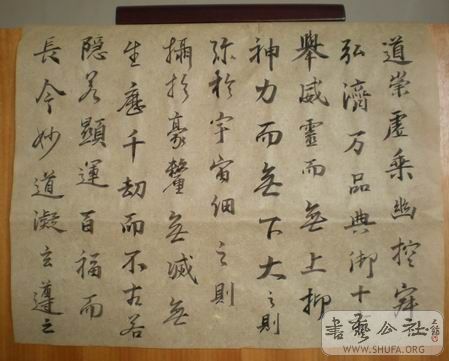 道崇虛乘幽控寂
弘濟万品典御十
舉威靈而無上抑
神力而無下大之則
弥於宇宙細之則
攝於豪釐無滅無
生歷千劫而不古若
隱若顯運百福而
長今妙道凝玄遵之
書藝公社
WWW.SHUFA.ORG